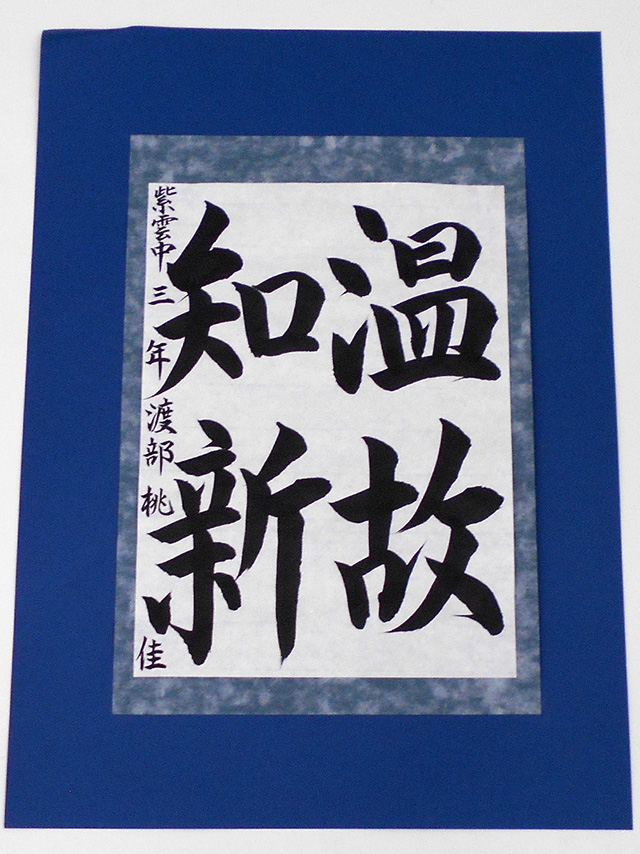 温故
知新
紫雲中三年渡部桃佳